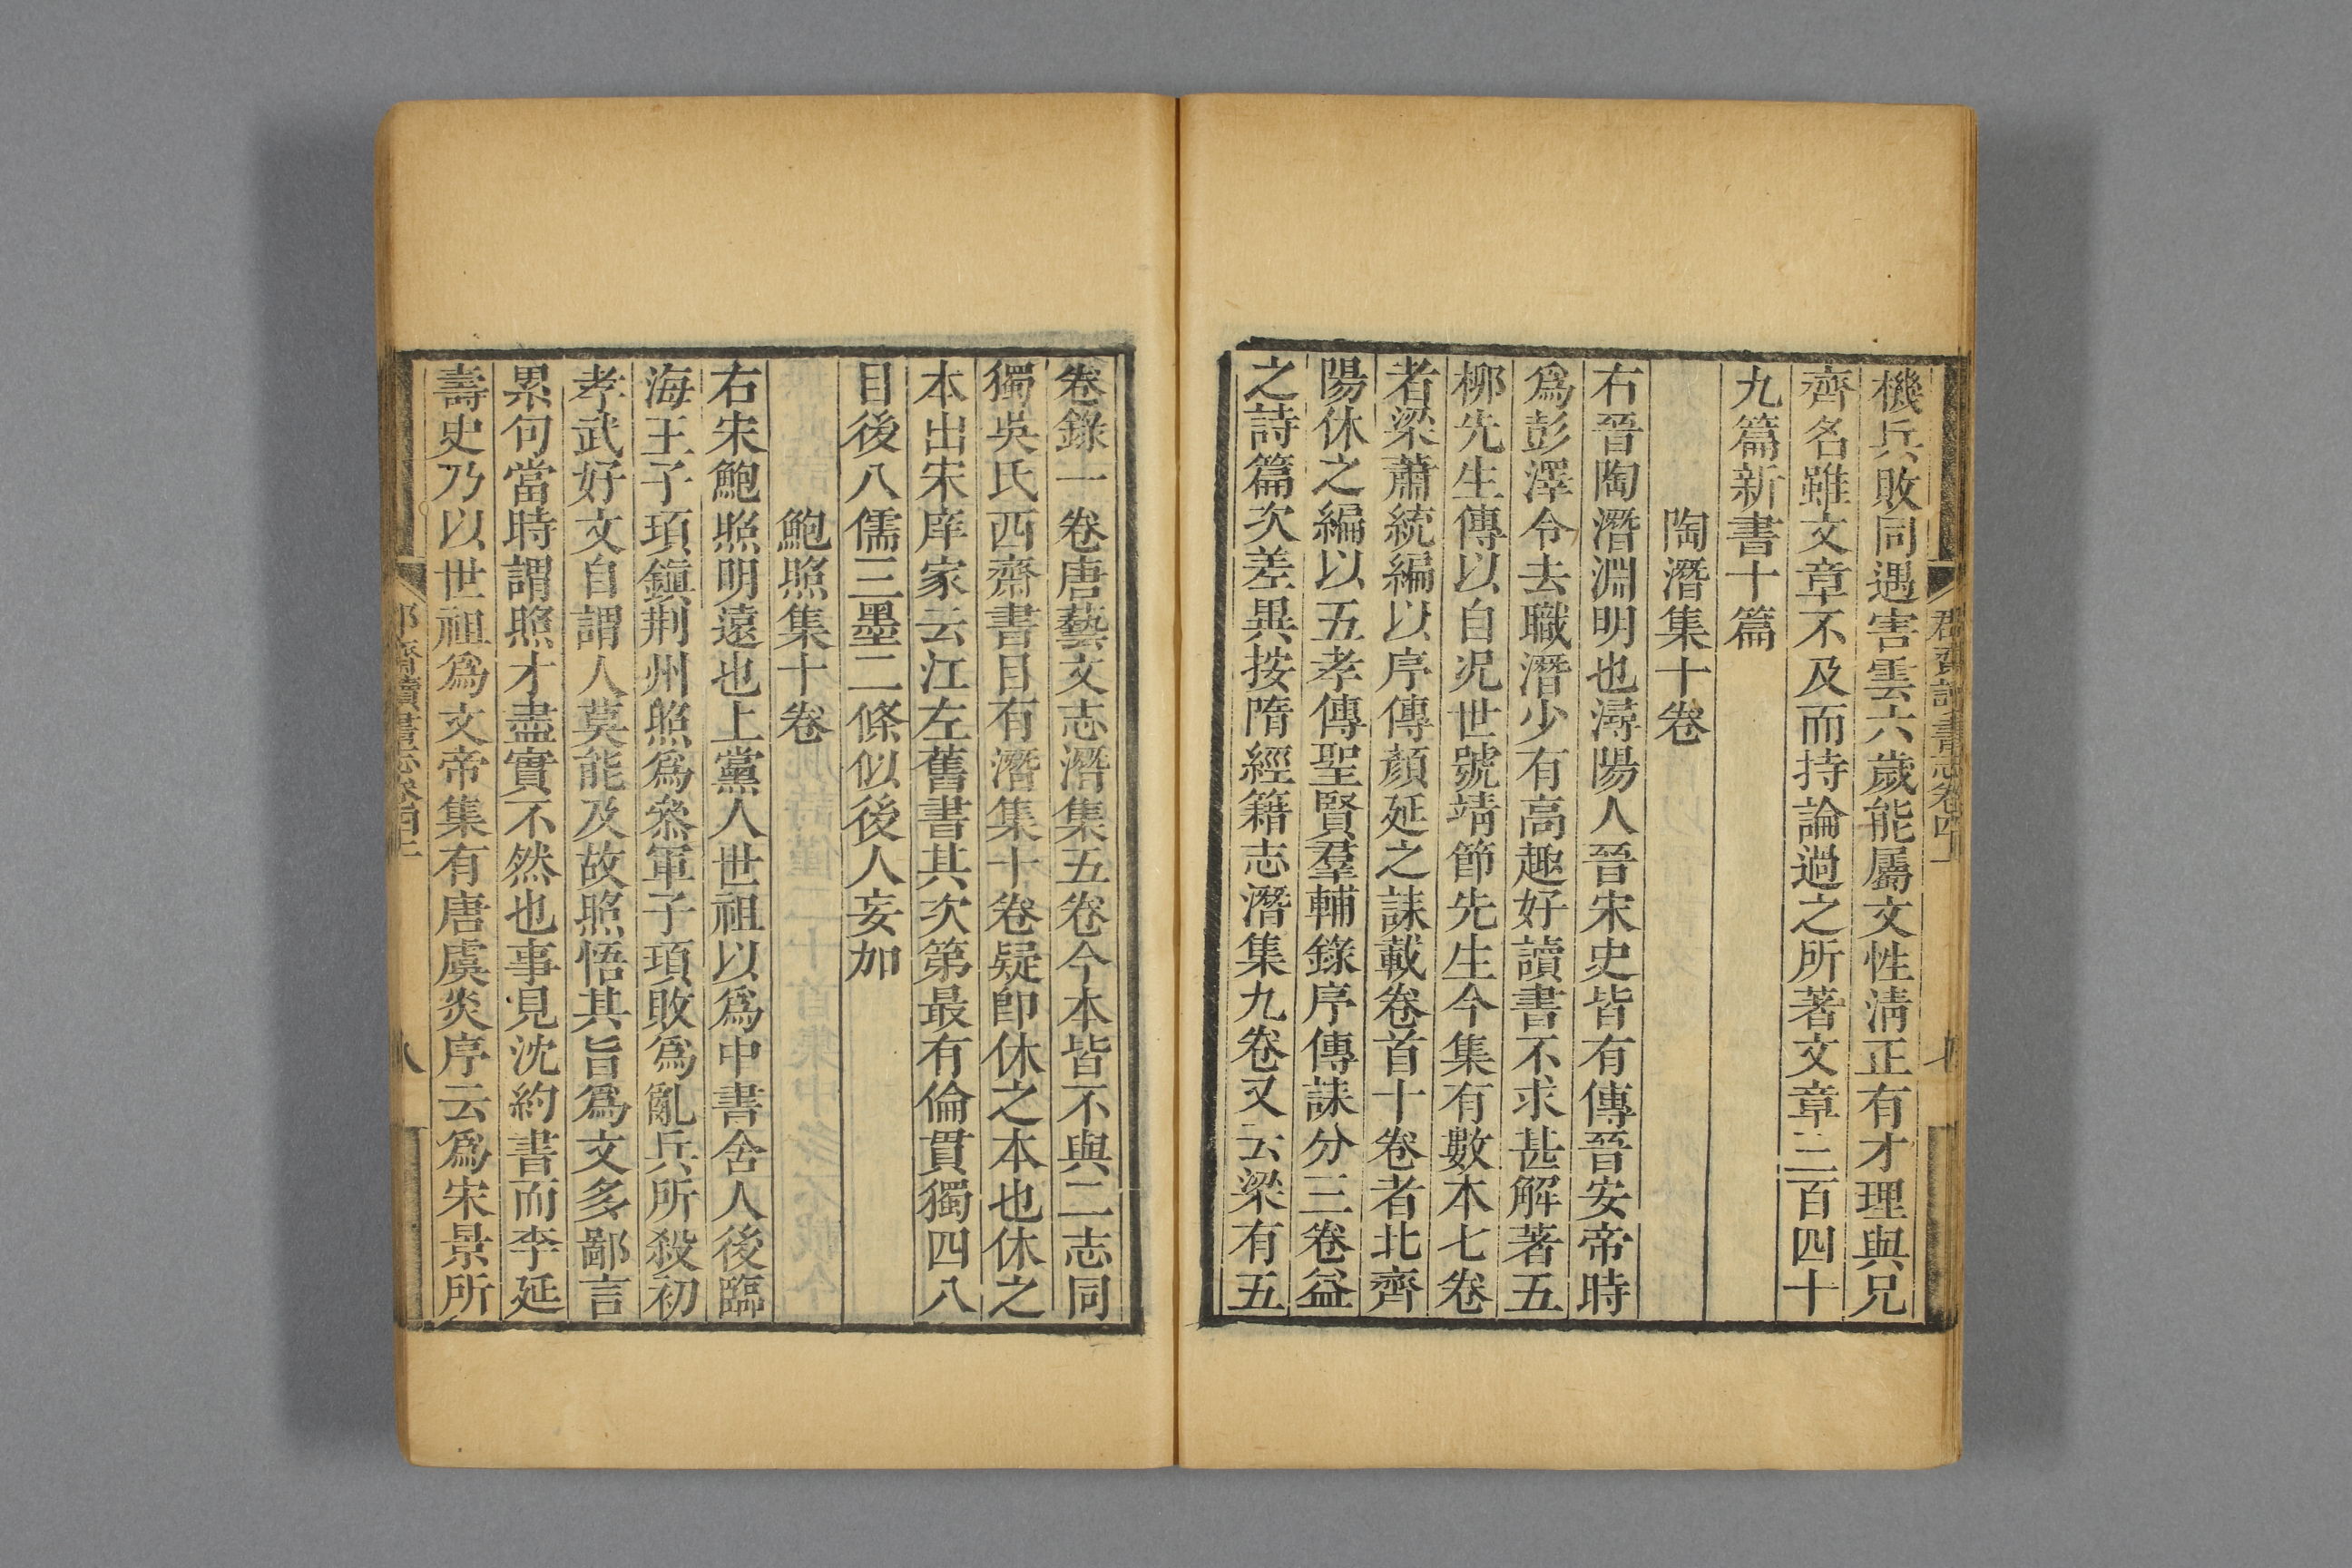 機兵敗同遇害雲六歲能屬文性淸正有才理與兄
齊名雖文章不及而持論過之所著文章三百四十
九篇新書十篇
陶潛集十卷
右晉陶潛淵明也潯陽人晉宋史皆有傳晉安帝時
爲彭澤令去職潛少有高趣好讀書不求甚解著五
柳先生傳以自況世號靖節先生今集有數本七卷
者梁蕭統編以序傳顏延之誄載卷首十卷者北齊
陽休之編以五孝傳聖賢羣輔錄序傳誄分三卷益
之詩篇次差異按隋經籍志潛集九卷又云梁有五
卷錄一卷唐藝文志潛集五卷今本皆不與二志同
獨吳氏西齋書目有潛集十卷疑卽休之本也休之
本出宋庠家云江左舊書其次第最有倫貫獨四八
目後八儒三墨二條似後人妄加
鮑照集十卷
右宋鮑照明遠也上黨人世祖以爲中書舍人後臨
海王子頊鎭荆州照爲叅軍子頊敗爲亂兵所殺初
孝武好文自謂人莫能及故照悟其旨爲文多鄙言
累句當時謂照才盡實不然也事見沈約書而李延
壽史乃以世祖爲文帝集有唐虞炎序云爲宋景所
讀書志卷四
八